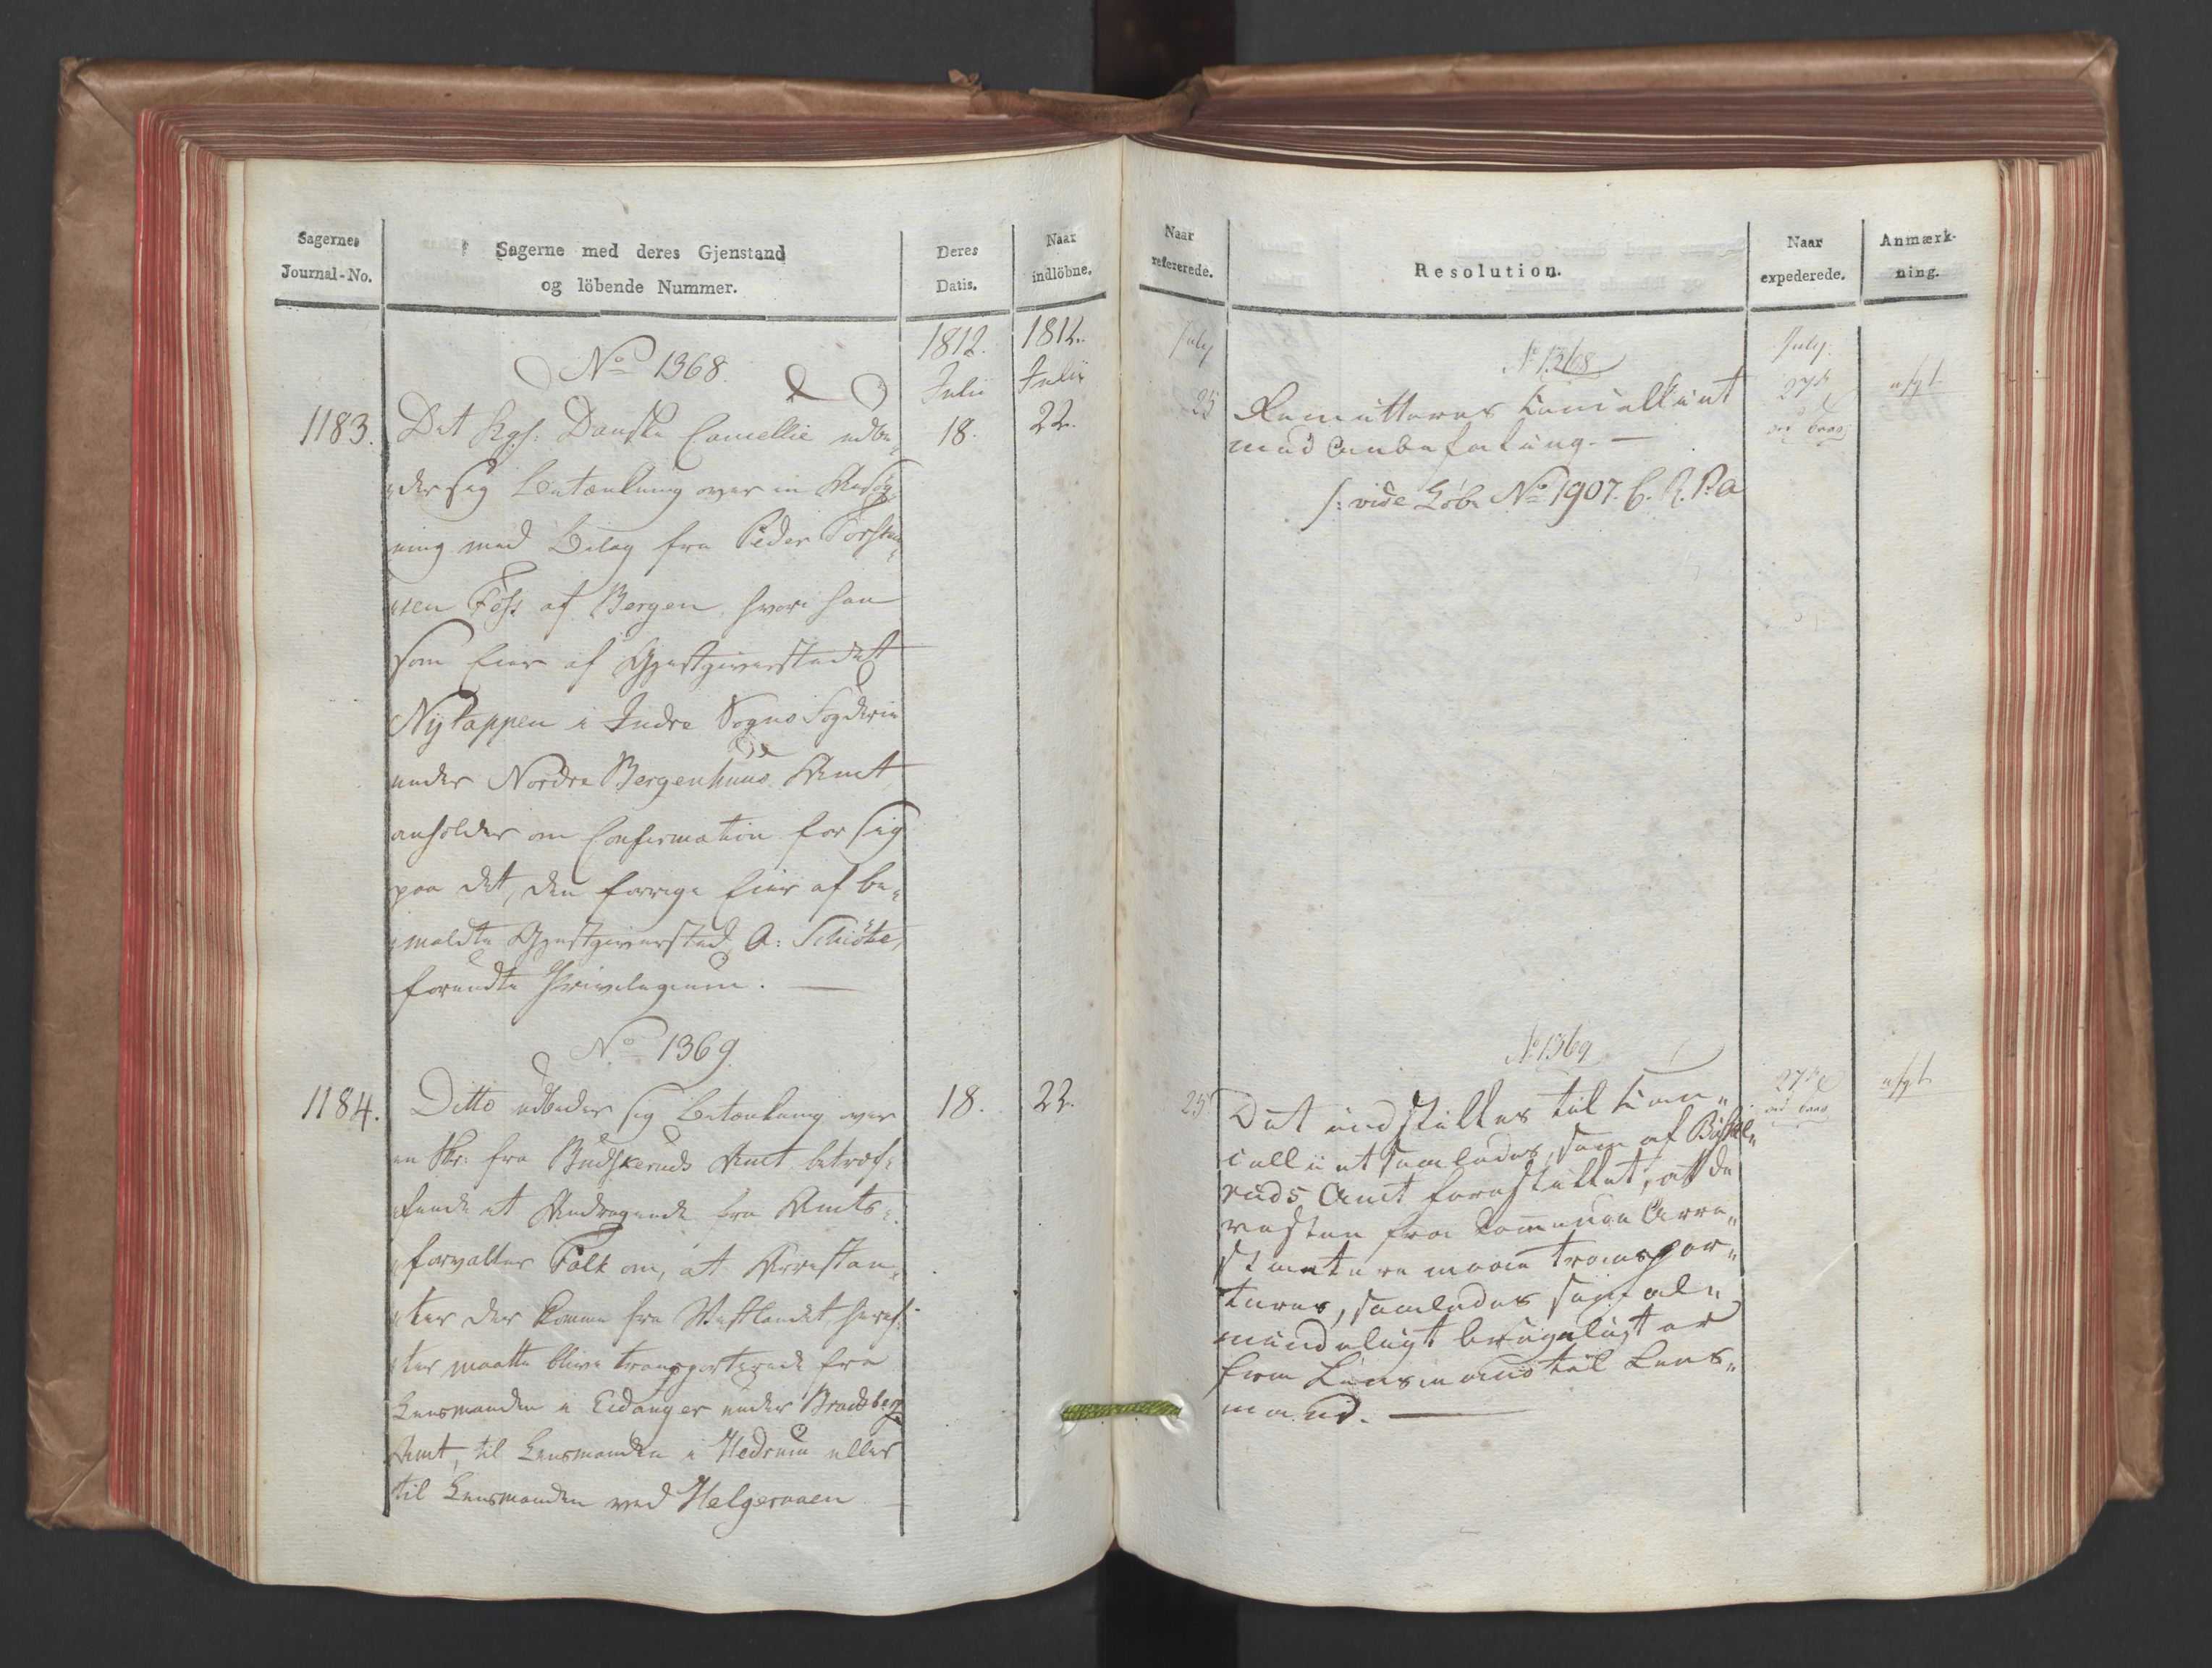 Sagernes
Journal-No.
Sagerne med deres Gjenstand
og löbende Nummer.
Deres
Datis.
Naar
indlöbne.
1812. 1812.
Julii Julii
No 1368.
1183. Det Kgl: Danske Cancellie udbe„ 18. 22.
„der sig Betænkning over en Ansøg„
ning med Bilag fra Peder Torsten„
„sen Foss af Bergen, hvori han
som Eier af Gjestgiverstedet
Nytappen i Indre Sogns Fogderie
under Nordre Bergenhuus Amt
anholder om Confirmation for sig
paa det, den forrige Eier af be„
„meldte Gjestgiversted, A: Schiötz,
forundte Privilegium. —
No 1369.
1184. Ditto udbeder sig Betænkning over 18. 22.
en Skr: fra Budskeruds Amt betref„
„fende et Andragende fra Amts„
„forvalter Falk om, at Arrestan„
„ter der komme fra Westlandet, heref„
„ter maatte blive transporterede fra
Lensmanden i Eidanger under Bradsberg
Amt, til Lensmanden i Hedrum eller
til Lensmanden ved Helgeroaen
Naar
refererede.
Resolution.
Naar
expederede.
Anmærk-
ning.
July July
No 1368
25 Remitteres Cancelliet 27de
med Anbefaling. —
/: vide Løb. No 1907.
No 1369
25 Det indstilles til Can„ 27de
celliet saaledes, som af Buske„
ruds Amt forestillet, at de
vesten fra kommende Arre„
stantere maae transpor„
teres, saaledes som al„
mindeligt brugeligt er
fra Lensmand til Lens„
mand. —